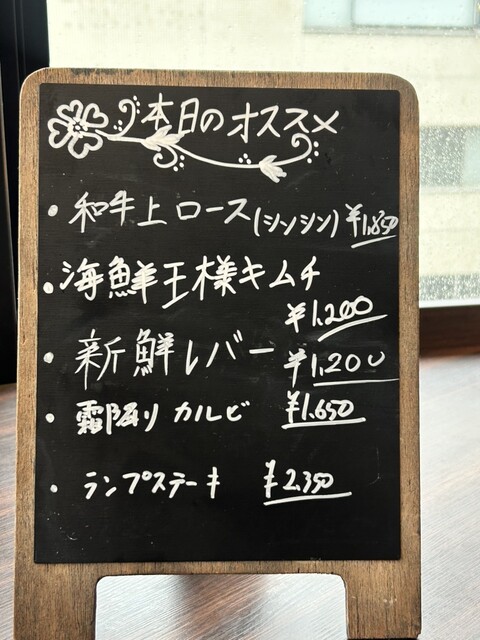 本日のオススメ
・和牛上ロース(シンシン) ¥1,850
・海鮮王様キムチ
¥1,200
・新鮮レバー ¥1,200
・霜降り カルビ ¥1,650
・ランプステーキ ¥2,350